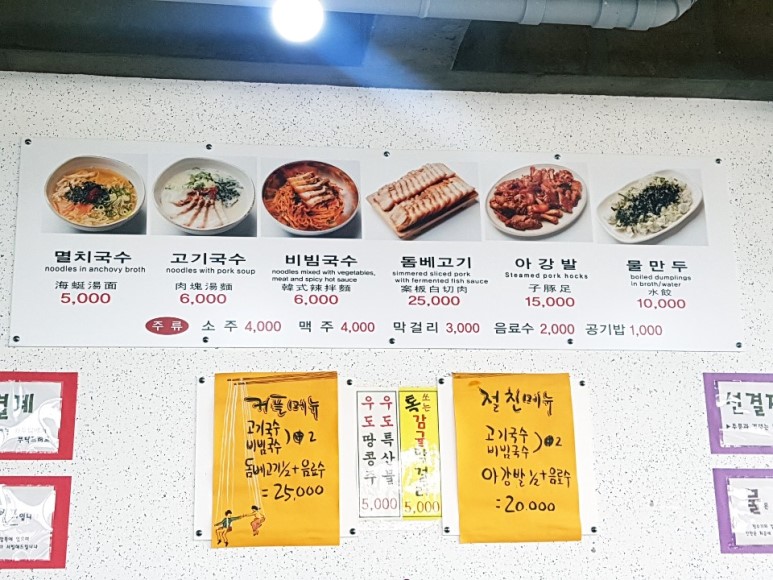 멸치국수
noodles in anchovy broth
海蜒湯面
5,000
고기국수
noodles with pork soup
肉塊湯麵
6,000
비빔국수
noodles mixed with vegetables,
meat and spicy hot sauce
韓式辣拌麵
6,000
돔베고기
simmered sliced pork
with fermented fish sauce
案板白切肉
25,000
아강발
Steamed pork hocks
子豚足
15,000
물만두
boiled dumplings
in broth/water
水餃
10,000
주류 소주 4,000 맥주 4,000 막걸리 3,000 음료수 2,000 공기밥 1,000
결제
커플메뉴
고기국수
비빔국수 ) 2
돔베고기½+음료수
=25,000
우도 땅콩
우도특산물
5,000
톡쏘는
감귤막걸리
5,000
절친메뉴
고기국수
비빔국수 ) 2
아강발 ½+음료수
=20,000
선결제